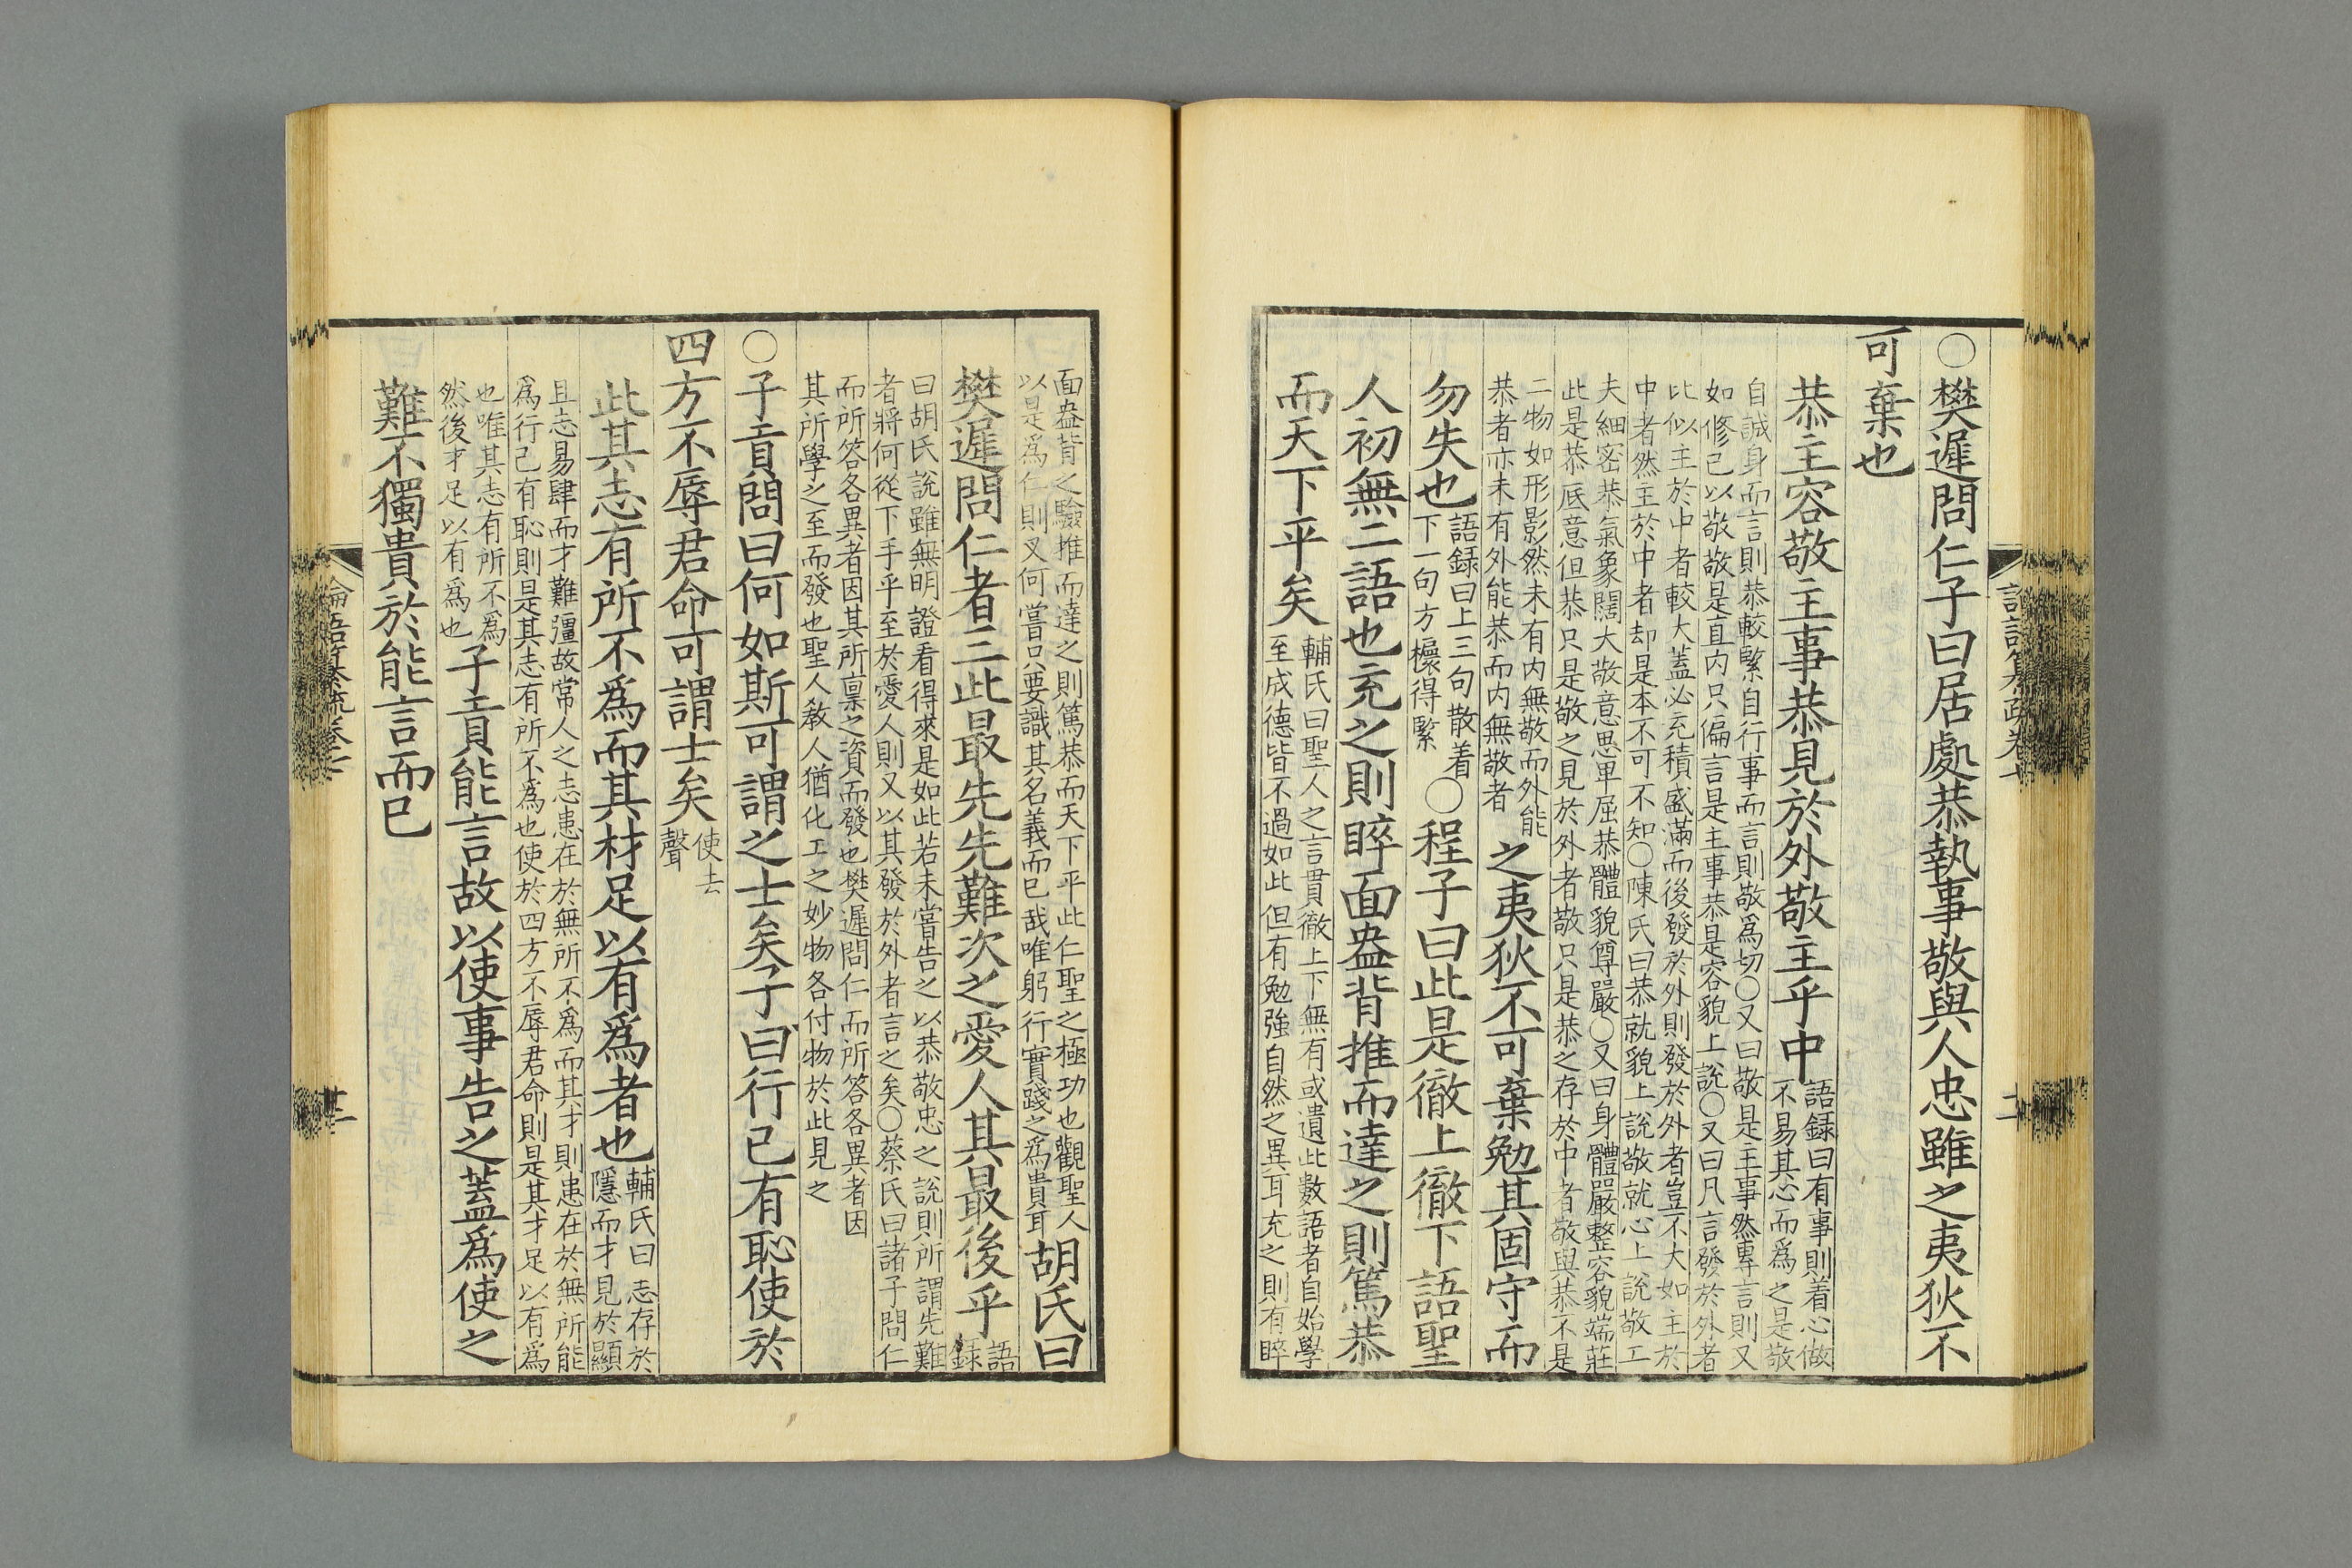 ○樊遲問仁子曰居處恭執事敬與人忠雖之夷狄不
可棄也
恭主容敬主事恭見於外敬主乎中
語録曰有事則着心做
不易其心而爲之是敬
自誠身而言則恭較緊自行事而言則敬爲切○又曰敬是主事然專言則又
如修己以敬敬是直内只偏言是主事恭是容貌上說○又曰凡言發於外者
比似主於中者較大蓋必充積盛滿而後發於外則發於外者豈不大如主於
中者然主於中者却是本不可不知○陳氏曰恭就貌上說敬就心上說敬工
夫細密恭氣象闊大敬意思卑屈恭體貌尊嚴○又曰身體嚴整容貌端莊
此是恭底意但恭只是敬之見於外者敬只是恭之存於中者敬與恭不是
二物如形影然未有内無敬而外能
恭者亦未有外能恭而内無敬者
之夷狄不可棄勉其固守而
勿失也
語録曰上三句散着
下一句方櫰得緊
○程子曰此是徹上徹下語聖
人初無二語也充之則睟面盎背推而達之則篤恭
而天下平矣
輔氏曰聖人之言貫徹上下無有或遺此數語者自始學
至成德皆不過如此但有勉強自然之異耳充之則有睟
面盎背之驗推而達之則篤恭而天下平此仁聖之極功也觀聖人
以是爲仁則又何嘗只要識其名義而已哉唯躬行實踐之爲貴耳
胡氏曰
樊遲問仁者三此最先先難次之愛人其最後乎
語
録
曰胡氏說雖無明證看得來是如此若未嘗告之以恭敬忠之說則所謂先難
者將何從下手乎至於愛人則又以其發於外者言之矣○蔡氏曰諸子問仁
而所答各異者因其所禀之資而發也樊遲問仁而所答各異者因
其所學之至而發也聖人教人猶化工之妙物各付物於此見之
○子貢問曰何如斯可謂之士矣子曰行己有恥使於
四方不辱君命可謂士矣
使去
聲
此其志有所不爲而其材足以有爲者也
輔氏曰志存於
隱而才見於顯
且志易肆而才難彊故常人之志患在於無所不爲而其才則患在於無所能
爲行己有恥則是其志有所不爲也使於四方不辱君命則是其才足以有爲
也唯其志有所不爲
然後才足以有爲也
子貢能言故以使事告之蓋爲使之
難不獨貴於能言而已
論語纂疏卷七